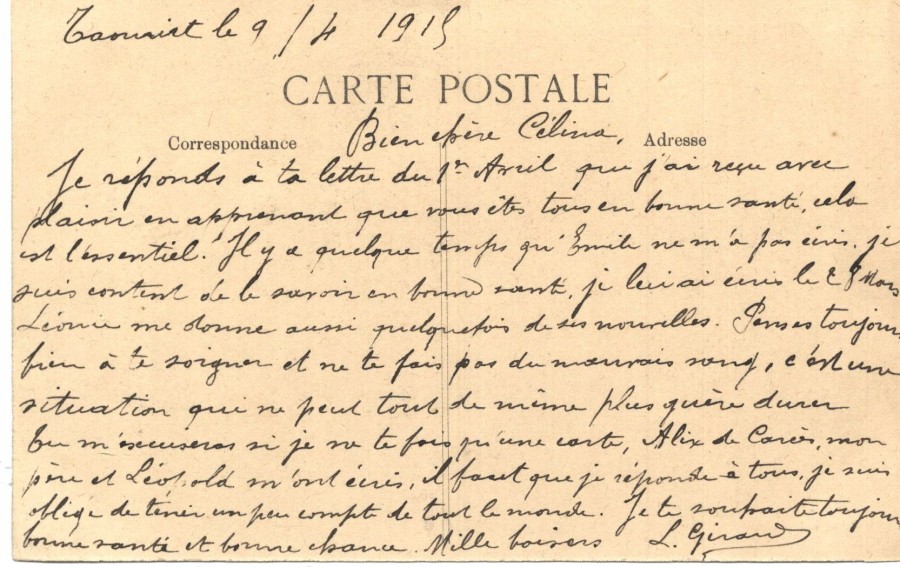 Taourirt le 9/4 1915
CARTE POSTALE
Correspondance Bien chère Célina, Adresse
Je réponds à ta lettre du 1er Avril que j'ai reçu avec
plaisir en apprenant que vous êtes tous en bonne santé, cela
est l'éssentiel. Il y a quelque temps qu'Emile ne m'a pas écris, je
suis content de le savoir en bonne santé, je lui ai écris le 28 Mars
Léonie me donne aussi quelquefois de ses nouvelles. Penses toujours
bien à te soigner et ne te fais pas du mauvais sang, c'est une
situation qui ne peut tout de même plus guère durer
Tu m'escuseras si je ne te fais qu'une carte, Alix de Carcès, mon
père et Léopold m'ont écris, il faut que je réponde à tous, je suis
obligé de ténir un peu compte de tout le monde. Je te souhaite toujours
bonne santé et bonne chance. Mille baisers L. Giraud